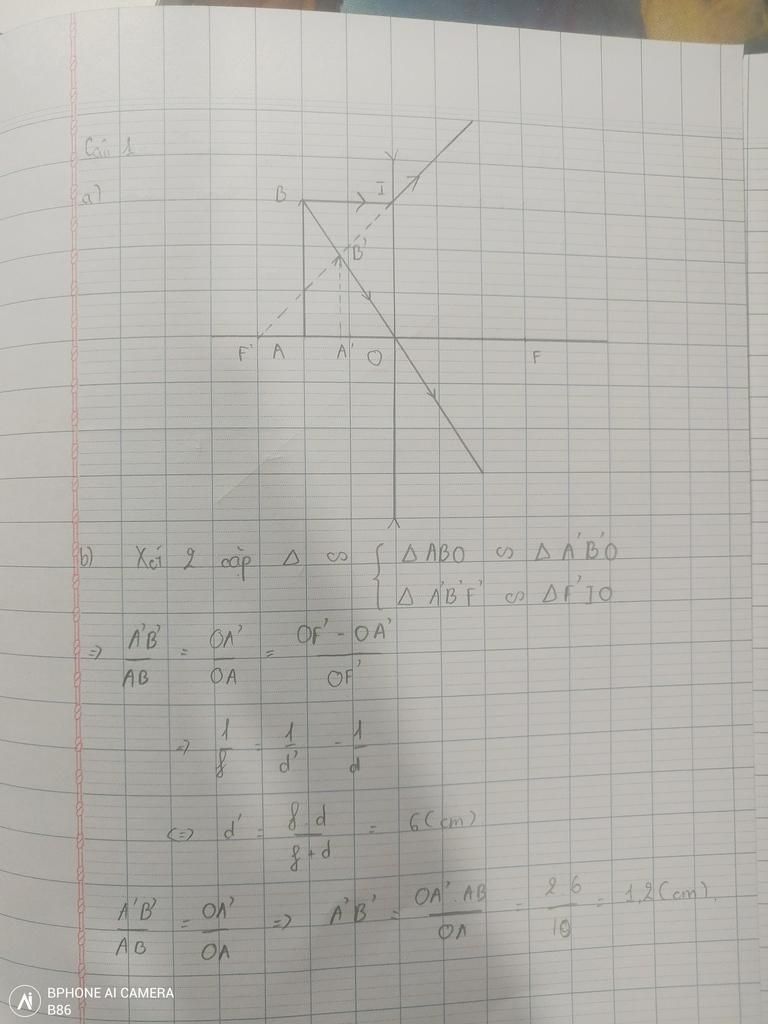 Câu 1
a)
B I
B'
F' A A' O F
b) Xét 2 cặp Δ ∽ { Δ ABO ∽ Δ A'B'O
Δ A'B'F' ∽ Δ F'IO
=> A'B'/AB = OA'/OA = OF' - OA'/OF'
=> 1/f = 1/d' - 1/d
<=> d' = f.d/f+d = 6(cm)
A'B'/AB = OA'/OA => A'B' = OA'.AB/OA = 2.6/10 = 1,2(cm).
BPHONE AI CAMERA
B86